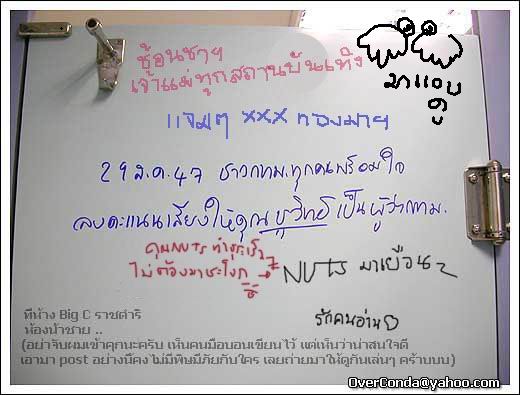 ช้อนชาฯ
เจ้าแม่ทุกสถานบันเทิง
มาแอบ
ดู
แจมๆ xxx ทองมาฯ
29 ส.ค. 47 ชาวกทม. ทุกคนพร้อมใจ
ลงคะแนนเสียงให้คุณชูวิทย์ เป็นผู้ว่ากทม.
คุณNUTS ทำธุระเร็วๆ
ไม่ต้องมาชะโงก
NUTS มาเยือน
รักคนอ่าน
ที่ห้าง Big C ราชดำริ
ห้องน้ำชาย ..
(อย่าจับผมเข้าคุกนะครับ เห็นคนมือบอนเขียนไว้ แต่เห็นว่าน่าสนใจดี
เอามา post อย่างนี้คงไม่มีพิษมีภัยกับใคร เลยถ่ายมาให้ดูกันเล่นๆ คร้าบบบ)
OverConda@yahoo.com